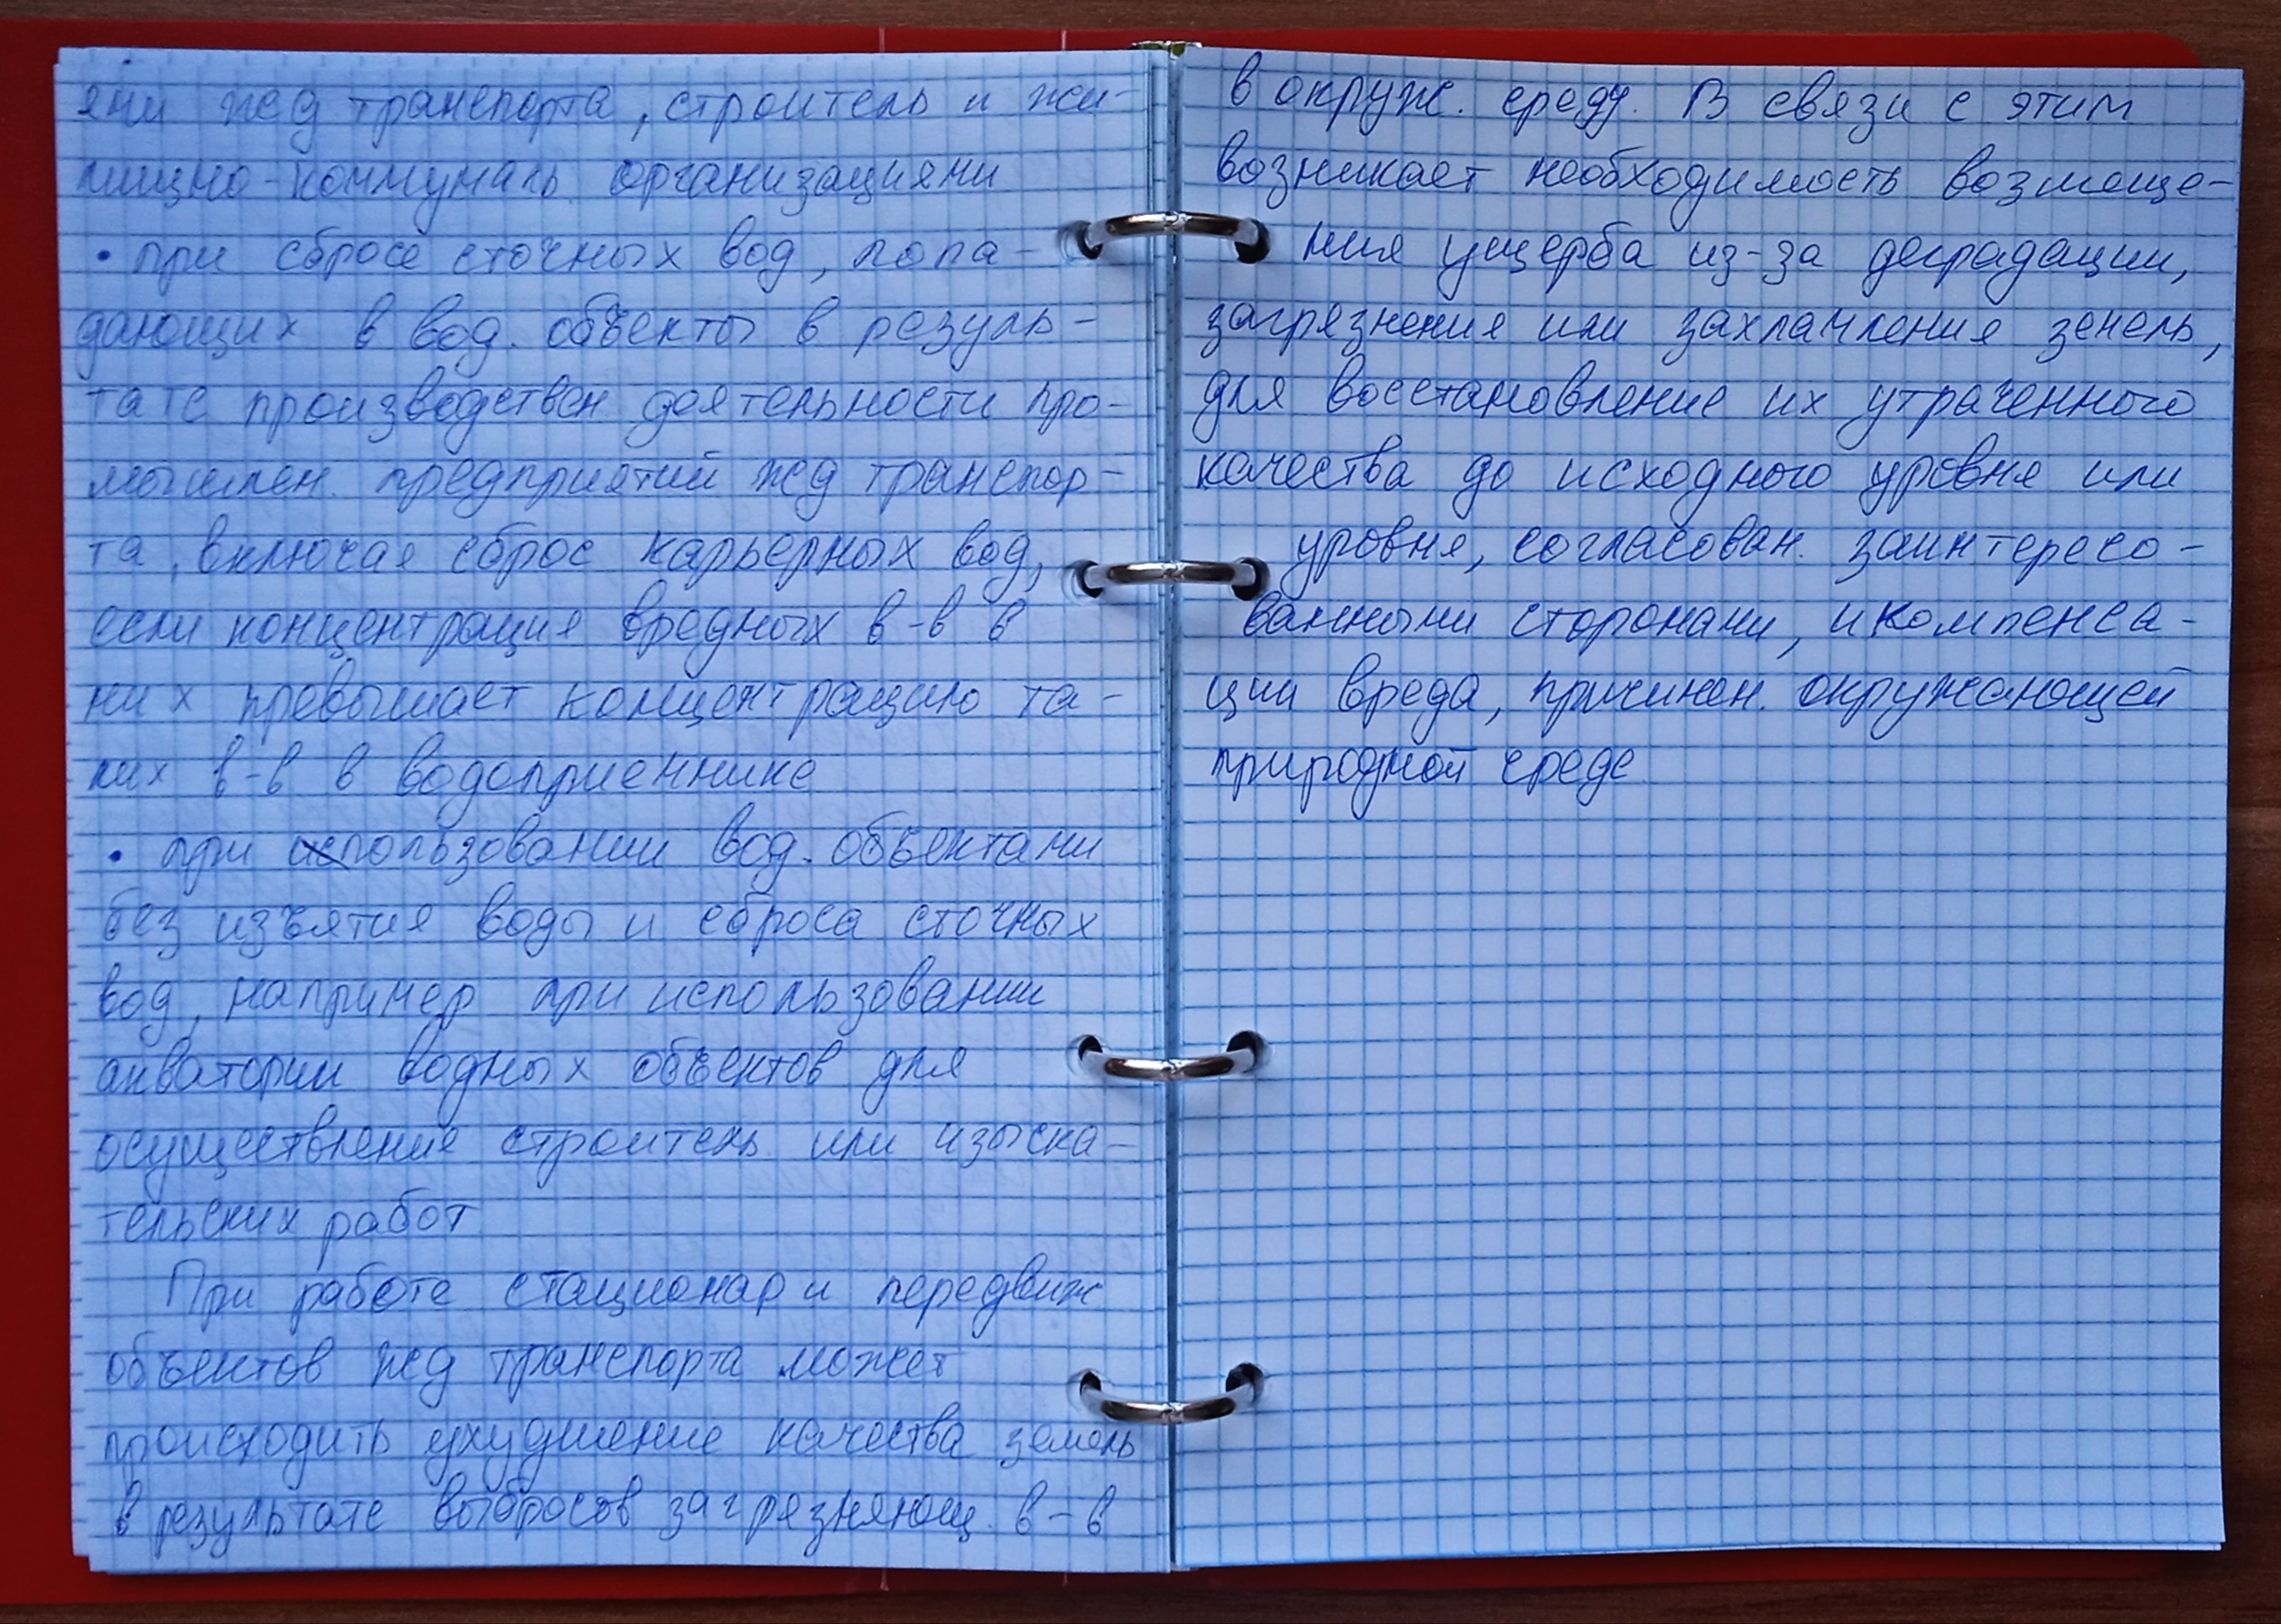 ями жед транспорта, строитель и жи-
лищно-коммуналь. организациями
• при сбросе сточных вод, попа-
дающих в вод. объекты в резуль-
тате производствен деятельности про-
мышлен. предприятий жед транспор-
та, включая сброс карьерных вод,
если концентрация вредных в-в в
них превышает концентрацию та-
ких в-в в водоприемнике
• при использовании вод. объектами
без изъятия воды и сброса сточных
вод, например при использовании
акватории водных объектов для
осуществления строитель. или изыска-
тельских работ
При работе стационар и передвиж
объектов жед транспорта может
происходить ухудшение качества земель
в результате выбросов загрязняющ. в-в
в окруж. среду. В связи с этим
возникает необходимость возмеще-
ния ущерба из-за деградации,
загрязнения или захламления земель,
для восстановление их утраченного
качества до исходного уровня или
уровня, согласован. заинтересо-
ванными сторонами, и компенса-
ции вреда, причинен. окружающей
природной среде